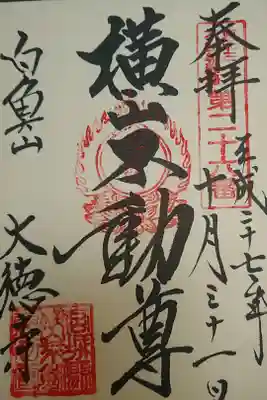 奉拝
第二十六番
平成二十七年
十月三十一日
横山不動尊
白魚山
大徳寺